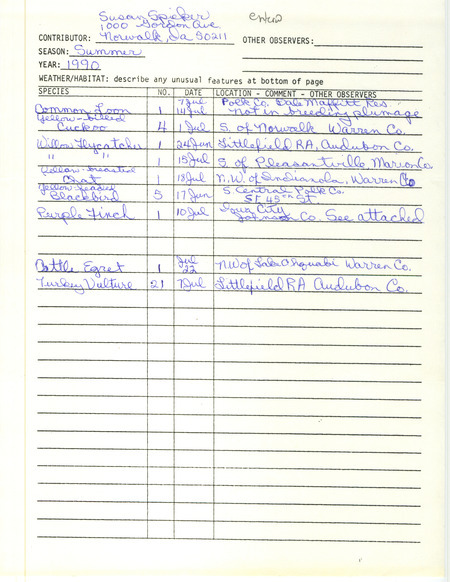 Susan Spieker
1000 Gordon Ave
CONTRIBUTOR: Norwalk, Ia 50211 OTHER OBSERVERS:
SEASON: Summer
YEAR: 1990
WEATHER/HABITAT: describe any unusual features at bottom of page
SPECIES NO. DATE LOCATION - COMMENT - OTHER OBSERVERS
7 Jul Polk Co. Dale Maffitt Res.
Common Loon 1 14 Jul not in breeding plumage
Yellow-billed
Cuckoo 4 1 Jul S. of Norwalk Warren Co.
Willow Flycatcher 1 24 Jun Littlefield RA, Audubon Co.
" " 1 15 Jul S. of Pleasantville Marion Co
Yellow-breasted
Chat 1 18 Jul N.W. of Indianola, Warren Co
Yellow-headed S Central Polk Co.
Blackbird 5 17 Jun St 45th St
Iowa City
Purple Finch 1 10 Jul Johnson Co. See attached
Jul
Cattle Egret 1 22 NW of Lake Ahquabi Warren Co.
Turkey Vulture 21 7 Jul Littlefield RA Audubon Co.